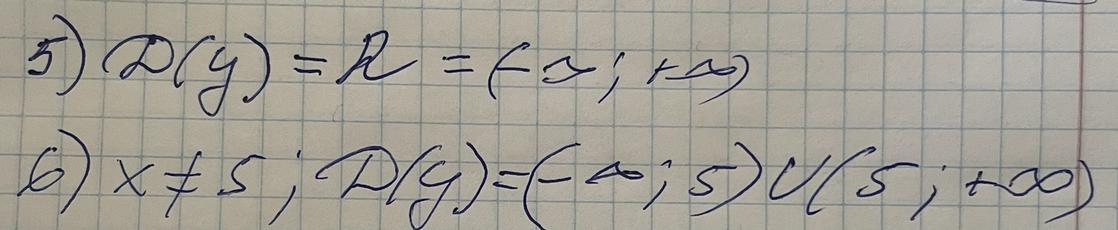 5) D(y) = R = (-∞; +∞)
6) x ≠ 5; D(y) = (-∞; 5) ∪ (5; +∞)